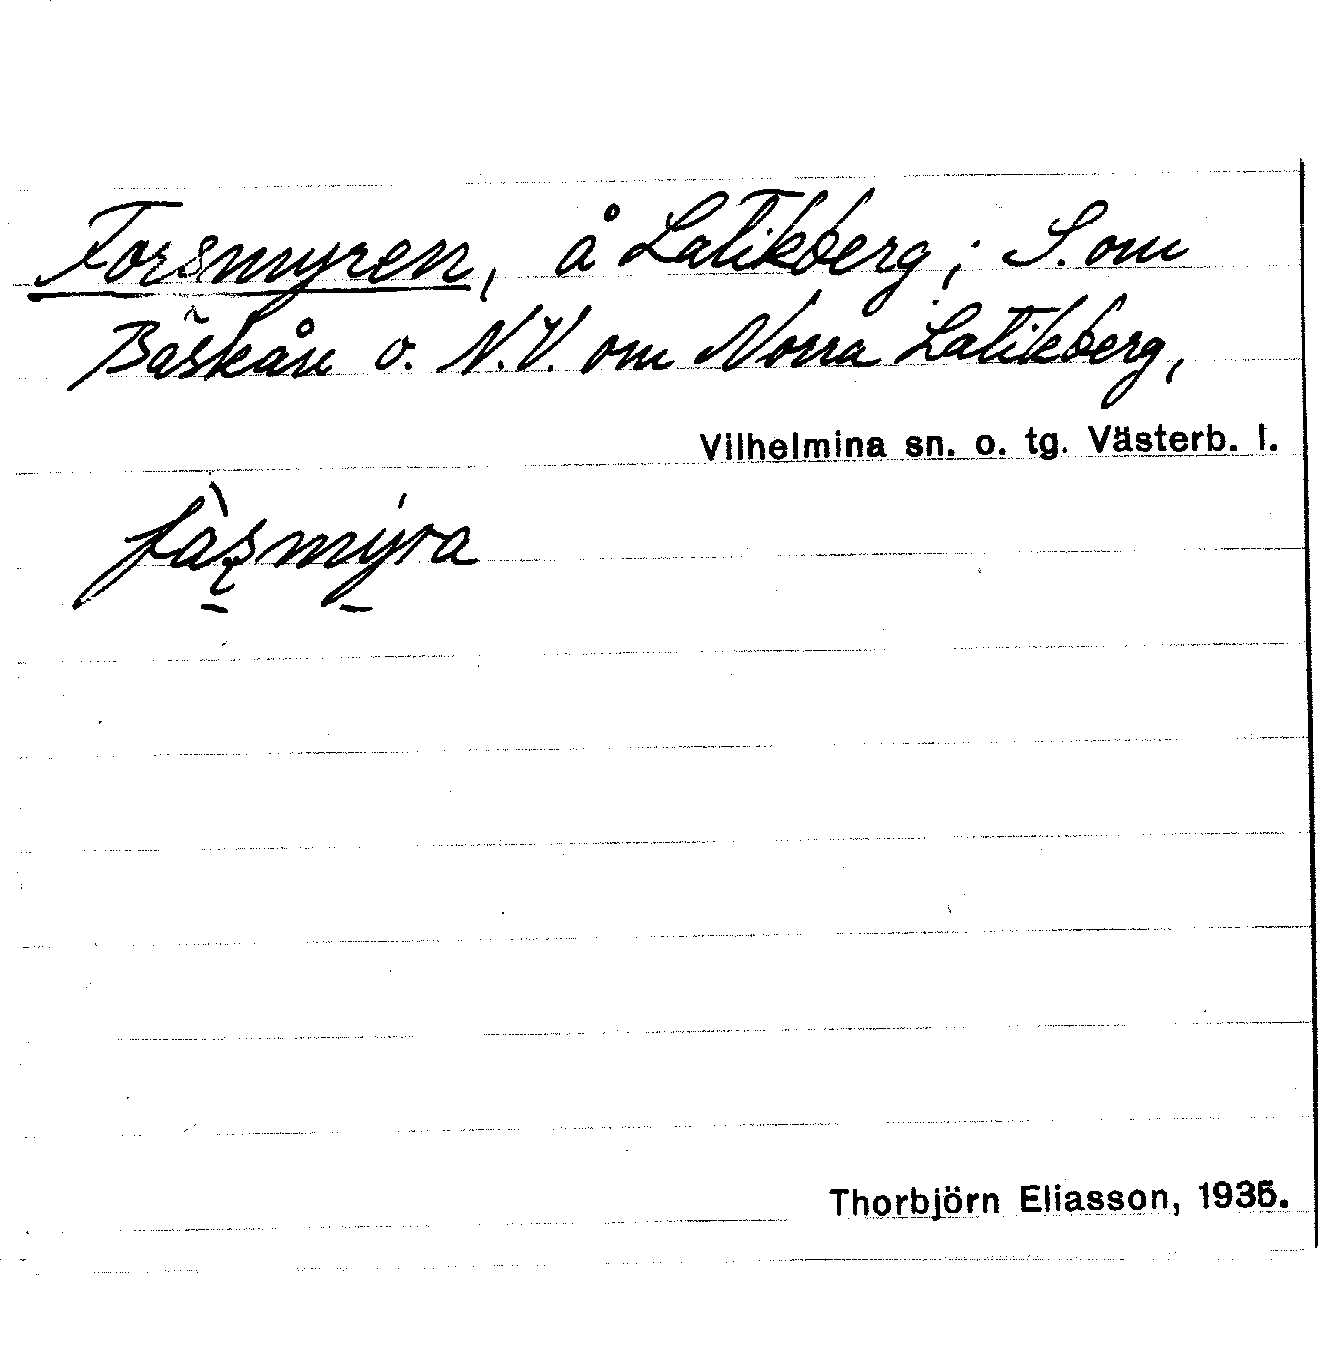 Forsmyren, å Latikberg; S. om
Bäskån o. N.V. om Norra Latikberg,
Vilhelmina sn. o. tg. Västerb. l.
fàʂmýra
Thorbjörn Eliasson, 1935.